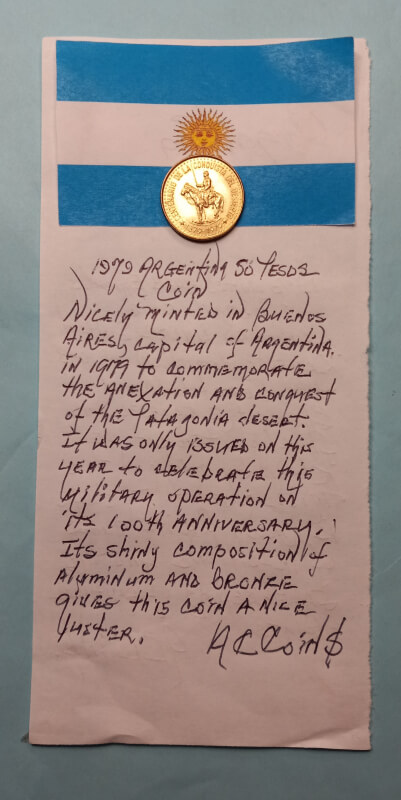 CENTENARIO DE LA CONQUISTA DEL DESIERTO
1879-1979
1979 ARGENTINA 50 PESOS
COIN
NICELY MINTED IN BUENOS
AIRES, CAPITAL of ARGENTINA.
IN 1979 TO COMMEMORATE
THE ANEXATION AND CONQUEST
OF THE PATAGONIA DESERT.
IT WAS ONLY ISSUED ON THIS
YEAR TO CELEBRATE THIS
MILITARY OPERATION ON
ITS 100TH ANNIVERSARY.
ITS SHINY COMPOSITION of
ALUMINUM AND BRONZE
GIVES THIS COIN A NICE
LUSTER.
ACCOIN$